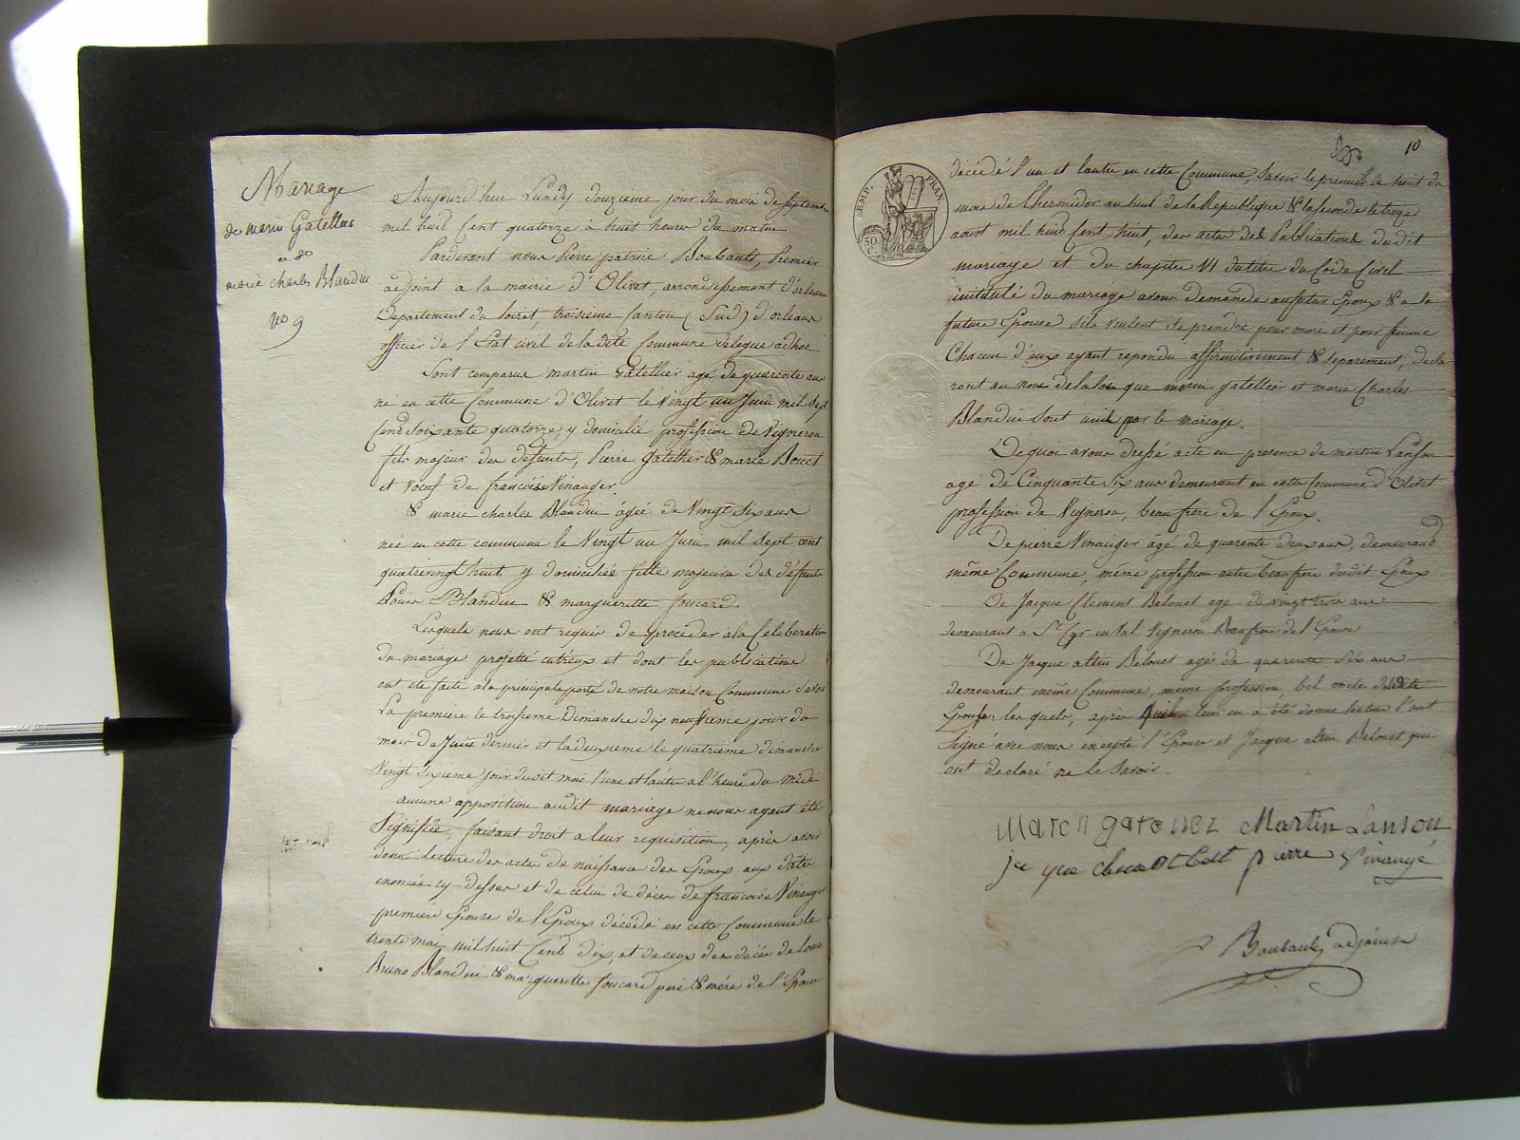 Mariage
de Martin Gatellier
et de
marie charles Blandin
No 9
Aujourd'hui Lundy douzieme jour du mois de septembre
mil huit Cent quatorze à huit heures du matin
Pardevant nous Pierre patrice Boubault, Premier
adjoint a la mairie d'Olivet, arrondissement d'orleans
Departement du loiret, troisieme Canton (Sud) d'orleans
officier de l'Etat civil de la dite Commune délégué adhoc
Sont comparus martin Gatellier agé de quarente ans
né en cette Commune d'Olivet le Vingt un Juin mil sept
Cent Soixante quatorze, y domicilié profession de Vigneron
fils majeur des defunts, Pierre Gatellier & marie Bouet
et Veuf de francoise Vinauger.
& marie charles Blandin âgée de Vingt Six ans
née en cette commune le Vingt un Juin mil sept cent
quatrevingt huit y domiciliée fille majeure des défunts
Louis Blandin & margueritte foucard.
Lesquels nous ont requis de proceder a la Celebration
du mariage projetté entreux et dont les publications
ont été faite a la principale porte de notre maison Commune Savoir
La premiere le troisieme Dimanche dix neuvieme jour du
mois de Juin dernier et la deuxieme le quatrieme dimanche
Vingt Sixieme jour dudit mois l'une et l'autre a l'heure du midi
aucune opposition audit mariage ne nous ayant été
Signifiée, faisant droit a leur requisition, après avoir
donné lecture des actes de naissance des Epoux aux dates
enoncées cy-dessus et de celui de décès de francoise Vinauger
premiere Epouse de l'Epoux décédée en cette Commune le
trente mai mil huit Cent dix, et de ceux des décès de louis
Bruno Blandin & margueritte foucard père & mère de l'Epouse
10
EMP. FRAN.
50
décédé l'un et lautre en cette Commune, Savoir le premier le huit du
mois de thermidor an huit de la Republique & la seconde le treze
aoust mil huit Cent huit, des actes des Publications dudit
mariage et du chapitre VI du titre du Code Civil
intitulé du mariage avons demandé au futur Epoux & a la
future Epouse s'ils veulent se prendre pour mari et pour femme
Chacun d'eux ayant repondu affirmativement & séparement, decla
rons au nom de la loi que martin gatellier et marie Charles
Blandin Sont unis par le mariage.
De quoi avons dressé acte en presence de martin Lanson
agé de Cinquante Six ans demeurant en cette Commune d'Olivet
profession de Vigneron, beaufrère de l'Epoux.
De pierre Vinauger âgé de quarente deux ans, demeurant
même Commune, même profession autre beaufrere dudit Epoux
De Jacque Clement Belouet agé de vingt trois ans
demeurant a St Cyr en Val Vigneron Beaufrere de l'Epouse
De Jacque Belouet agé de quarente Six ans
demeurant même Commune, meme profession, bel oncle de ladite
Epouse lesquels, après qu'il leur en a été donné lecture l'ont
Signé avec nous excepté l'Epouse et Jacque Belouet qui
ont declaré ne le Savoir.
Marten gatellier Martin Lanson
pierre Vinaugé
Boubault, adjoint